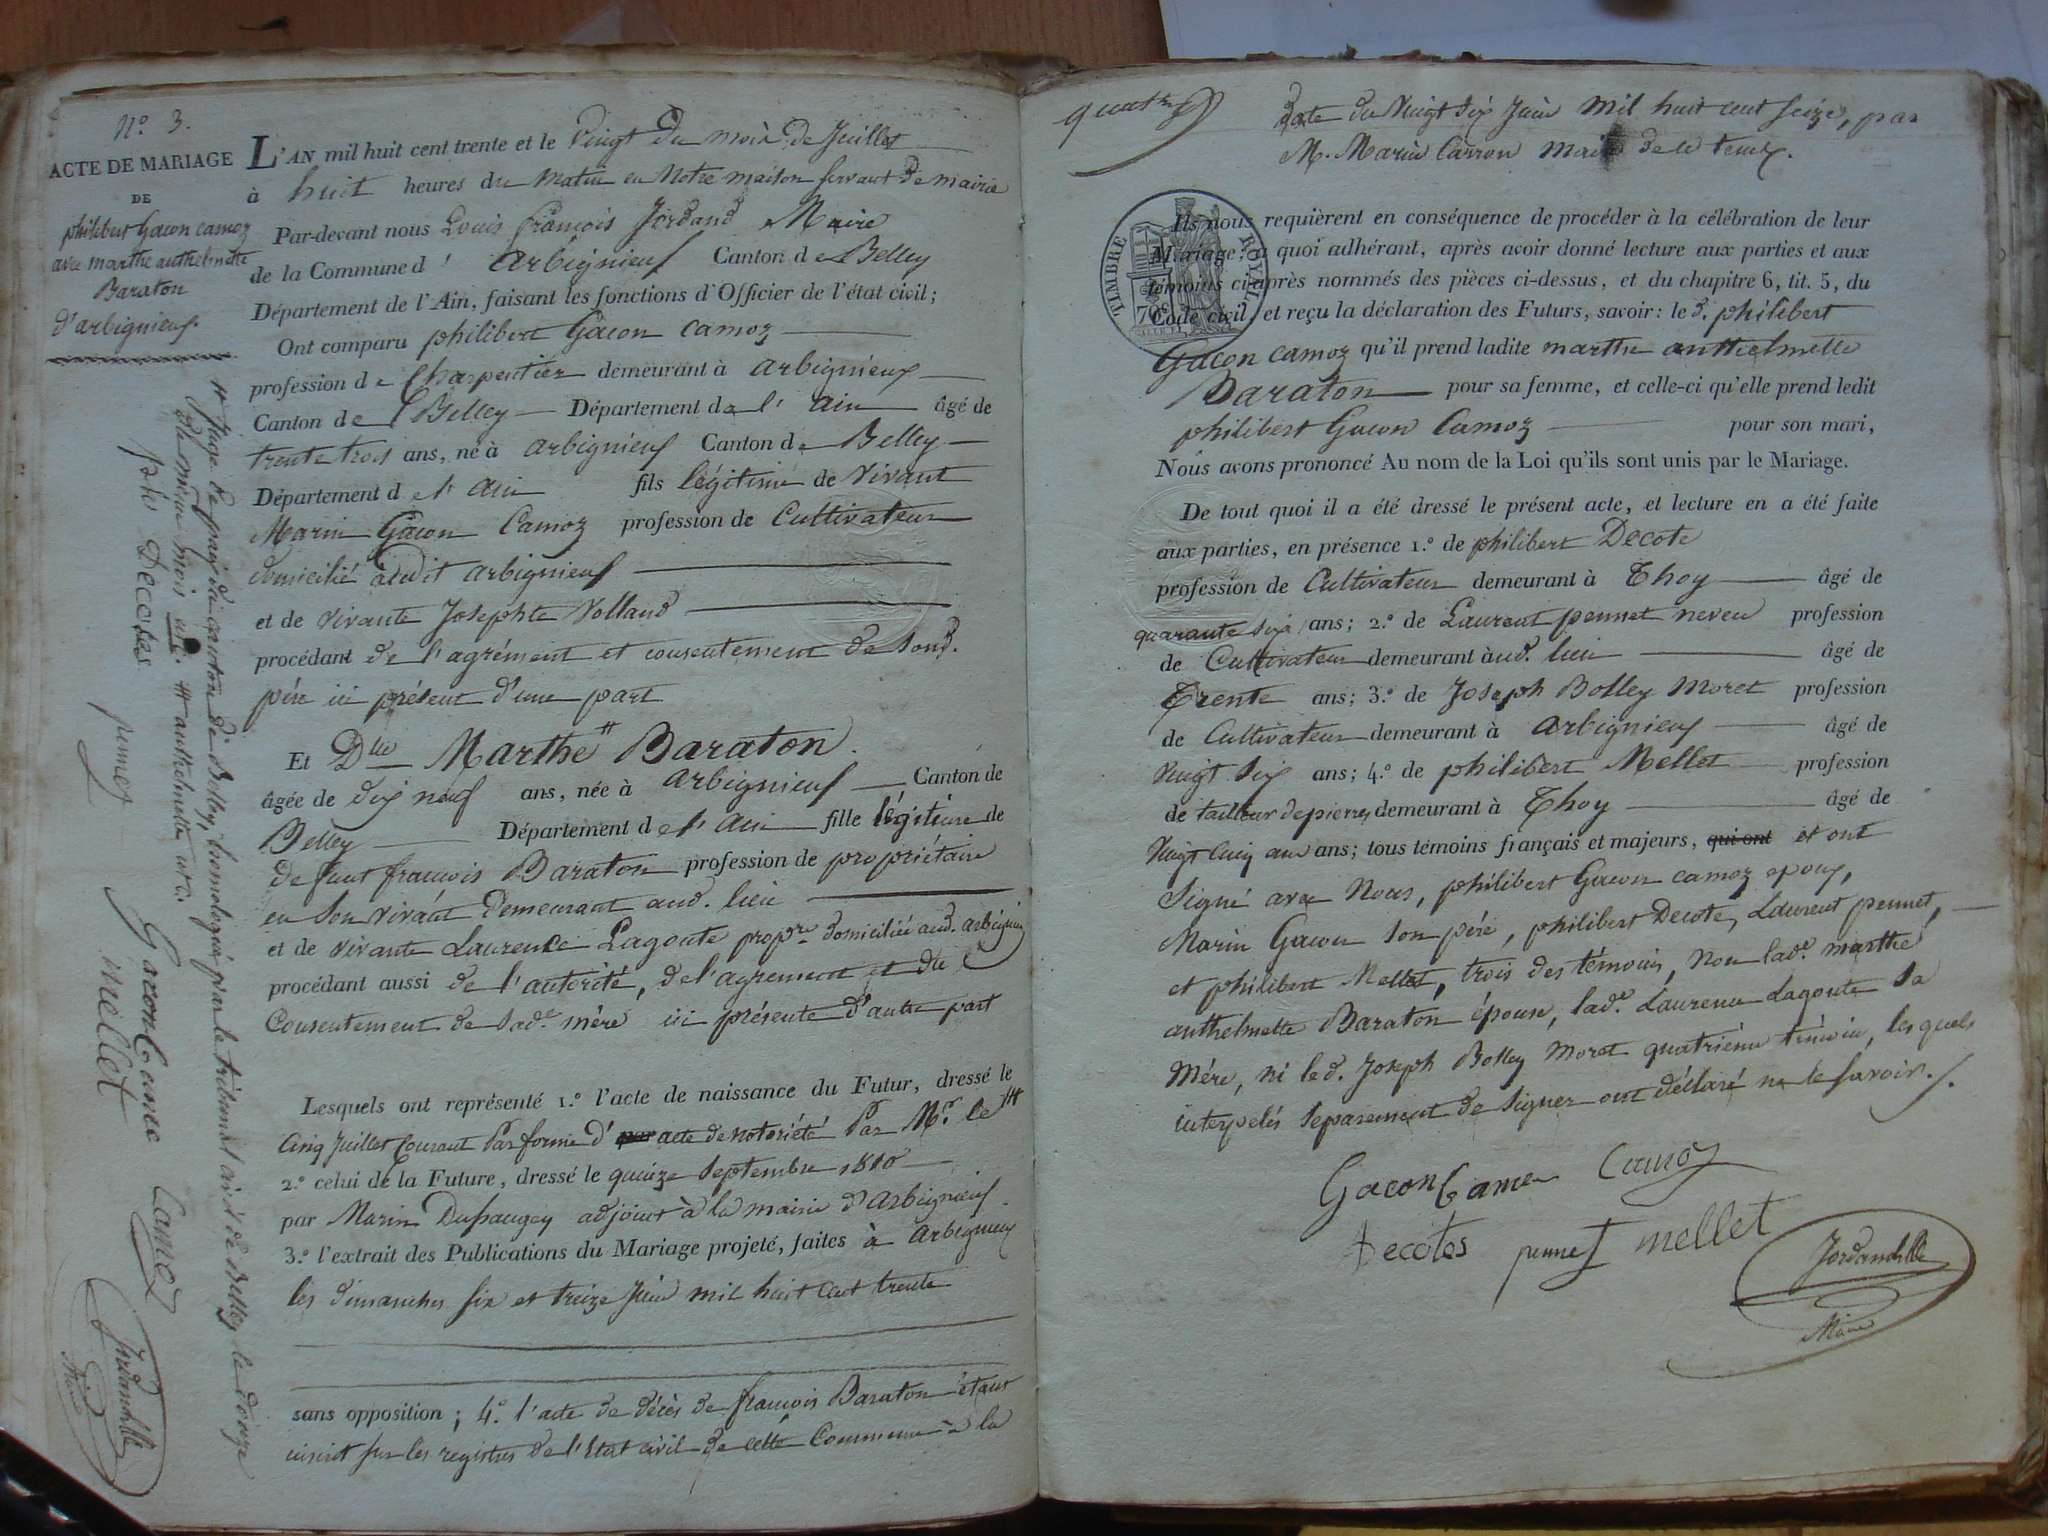 N.o 3.
ACTE DE MARIAGE
DE
philibert Gacon camoz
avec marthe anthelmette
Baraton
d'arbignieu.
L'AN mil huit cent trente et le vingt du mois de Juillet
à huit heures du matin en Notre maison servant de mairie
Par-devant nous Louis françois Jordand Maire
de la Commune d' arbignieu Canton de Belley
Département de l'Ain, faisant les fonctions d'Officier de l'état civil;
Ont comparu philibert Gacon camoz
profession de Charpentier demeurant à arbignieu
Canton de Belley Département de l' ain âgé de
trente trois ans, né à arbignieu Canton de Belley
Département de l' ain fils légitime de vivant
Marin Gacon Camoz profession de Cultivateur
domicilié audit arbignieu
et de vivante Josephte Volland
procédant de l'agrément et consentement de sond.
père ici présent d'une part
Et Dlle Marthe # Baraton.
âgée de dix neuf ans, née à arbignieu Canton de
Belley Département de l' ain fille légitime de
de feut françois Baraton profession de propriétaire
en son vivant demeurant aud. lieu
et de vivante Laurence Lagoute propre domiciliée aud. arbignieu
procédant aussi de l'autorité, de l'agrement et du
Consentement de sade mère ici présente d'autre part
Lesquels ont représenté 1.o l'acte de naissance du Futur, dressé le
Cinq Juillet Courant Par forme d' acte de notoriété Par Mr. le #
2.o celui de la Future, dressé le quinze septembre 1810
par Marin Dufaugey adjoint à la mairie d'arbignieu
3.o l'extrait des Publications du Mariage projeté, faites à arbignieu
les dimanches six et treize Juin mil huit cent trente
sans opposition; 4.o l'acte de décès de françois Baraton étant
inscrit sur les registres de l'Etat civil de cette Commune à la
# Juge de paix du canton de Belley, homologué par le tribunal civil de Belley le douze
du même mois # anthelmette
phi Decotes pennet Gacon Came Camoz
mellet Jordand
Maire
quatre
date du vingt six Juin mil huit cent seize, par
M. Marin Carron maire de ce tems.
TIMBRE ROYAL
70c
Ils nous requièrent en conséquence de procéder à la célébration de leur
Mariage: à quoi adhérant, après avoir donné lecture aux parties et aux
témoins ci-après nommés des pièces ci-dessus, et du chapitre 6, tit. 5, du
Code civil, et reçu la déclaration des Futurs, savoir: le d. philibert
Gacon camoz qu'il prend ladite marthe anthelmette
Baraton pour sa femme, et celle-ci qu'elle prend ledit
philibert Gacon Camoz pour son mari,
Nous avons prononcé Au nom de la Loi qu'ils sont unis par le Mariage.
De tout quoi il a été dressé le présent acte, et lecture en a été faite
aux parties, en présence 1.o de philibert Decote
profession de Cultivateur demeurant à Thoy âgé de
quarante six ans; 2.o de Laurent pennet neveu profession
de Cultivateur demeurant à ud. lieu âgé de
Trente ans; 3.o de Joseph Bolley Moret profession
de Cultivateur demeurant à arbignieu âgé de
vingt six ans; 4.o de philibert Mellet profession
de tailleur de pierres demeurant à Thoy âgé de
vingt cinq ans ans; tous témoins français et majeurs, qui ont et ont
Signé avec Nous, philibert Gacon camoz epoux,
Marin Gacon son père, philibert Decote, Laurent pennet,
et philibert Mellet, trois des témoins, non lade. marthe
anthelmette Baraton épouse, lade. Laurence Lagoute sa
Mère, ni led. Joseph Bolley Moret quatrième témoin, lesquels
interpelés séparement de signer ont déclaré ne le savoir.
Gacon Came Camoz
Decotes pennet mellet
Jordand
Maire